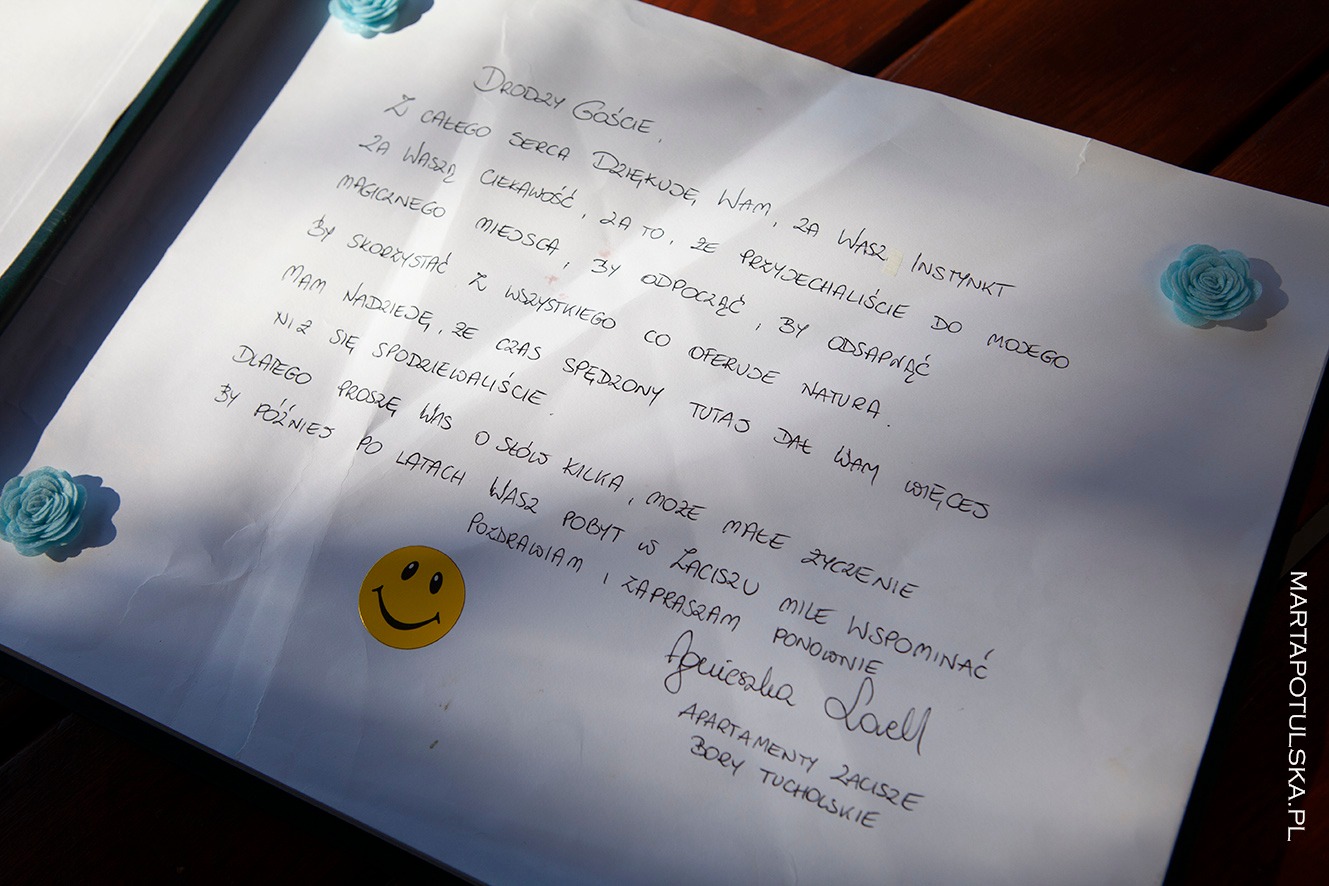 DRODZY GOŚCIE,
Z CAŁEGO SERCA DZIĘKUJĘ WAM, ZA WASZ INSTYNKT
ZA WASZĄ CIEKAWOŚĆ, ZA TO, ŻE PRZYJECHALIŚCIE DO MOJEGO
MAGICZNEGO MIEJSCA, BY ODPOCZĄĆ, BY ODSAPNĄĆ
BY SKORZYSTAĆ Z WSZYSTKIEGO CO OFERUJE NATURA.
MAM NADZIEJĘ, ŻE CZAS SPĘDZONY TUTAJ DAŁ WAM WIĘCEJ
NIŻ SIĘ SPODZIEWALIŚCIE.
DLATEGO PROSZĘ WAS O SŁÓW KILKA, MOŻE MAŁE ŻYCZENIE
BY PÓŹNIEJ PO LATACH WASZ POBYT W ZACISZU MILE WSPOMINAĆ
POZDRAWIAM I ZAPRASZAM PONOWNIE
Agnieszka Laell
APARTAMENTY ZACISZE
BORY TUCHOLSKIE
MARTAPOTULSKA.PL